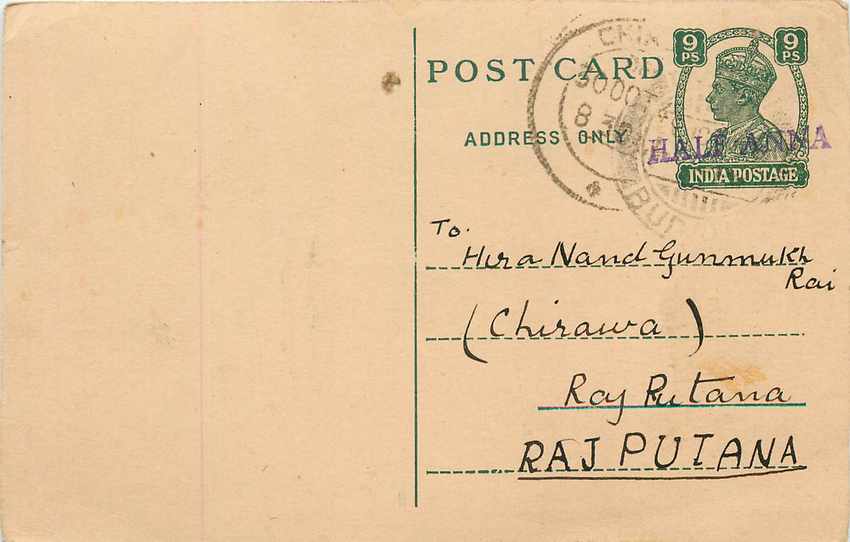 POST CARD
9 PS 9 PS
ADDRESS ONLY
HALF ANNA
INDIA POSTAGE
30 OCT
8 30
To.
Hira Nand Gunmukh
Rai
(Chirawa)
Raj Putana
RAJ PUTANA